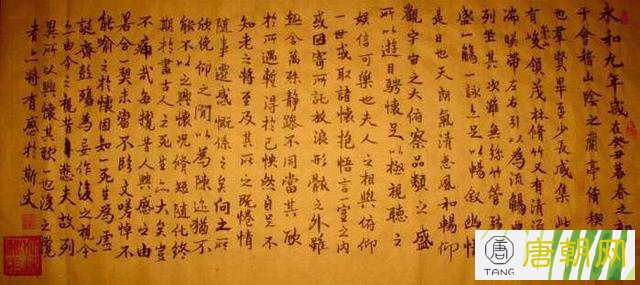 永和九年歲在癸丑暮春之初
于會稽山陰之蘭亭脩禊
也羣賢畢至少長咸集此
有峻領茂林脩竹又有清流
湍暎帶左右引以為流觴曲
列坐其次雖無絲竹管弦
盛一觴一詠亦足以暢敘幽情
是日也天朗氣清惠風和暢仰
觀宇宙之大俯察品類之盛
所以遊目騁懷足以極視聽之
娛信可樂也夫人之相與俯仰
一世或取諸懷抱悟言一室之內
或因寄所託放浪形骸之外雖
趣舍萬殊靜躁不同當其欣
於所遇暫得於己怏然自足不
知老之將至及其所之既惓情
隨事遷感慨係之矣向之所
欣俛仰之間以為陳迹猶不
能不以之興懷況脩短隨化終
期於盡古人云死生亦大矣豈
不痛哉每攬昔人興感之由
若合一契未嘗不臨文嗟悼不
能喻之於懷固知一死生為虛
誕齊彭殤為妄作後之視今
亦由今之視昔悲夫故列
異所以興懷其致一也後之攬
者亦將有感於斯文
TANG
唐朝网